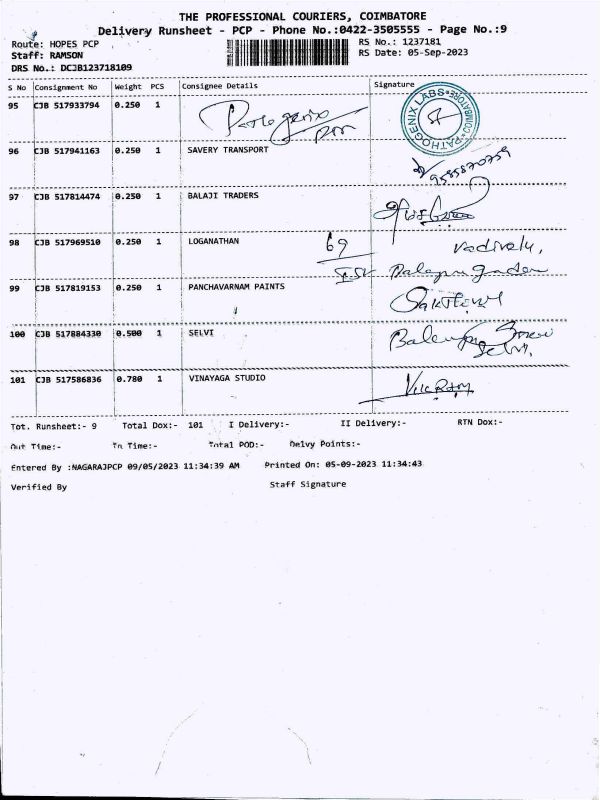 THE PROFESSIONAL COURIERS, COIMBATORE
Delivery Runsheet - PCP - Phone No.:0422-3505555 - Page No.:9
Route: HOPES PCP RS No.: 1237181
Staff: RAMSON RS Date: 05-Sep-2023
DRS No.: DCJB123718109
S No Consignment No Weight PCS Consignee Details Signature
95 CJB 517933794 0.250 1
PATHOGENIX LABS COIMBATORE
96 CJB 517941163 0.250 1 SAVERY TRANSPORT
97 CJB 517814474 0.250 1 BALAJI TRADERS
98 CJB 517969510 0.250 1 LOGANATHAN 69 vadivelu,
99 CJB 517819153 0.250 1 PANCHAVARNAM PAINTS
Sakthivel
100 CJB 517884330 0.500 1 SELVI
Selvi,
101 CJB 517586836 0.780 1 VINAYAGA STUDIO Vikram
Tot. Runsheet:- 9 Total Dox:- 101 I Delivery:- II Delivery:- RTN Dox:-
Out Time:- In Time:- Total POD:- Delvy Points:-
Entered By :NAGARAJPCP 09/05/2023 11:34:39 AM Printed On: 05-09-2023 11:34:43
Verified By Staff Signature